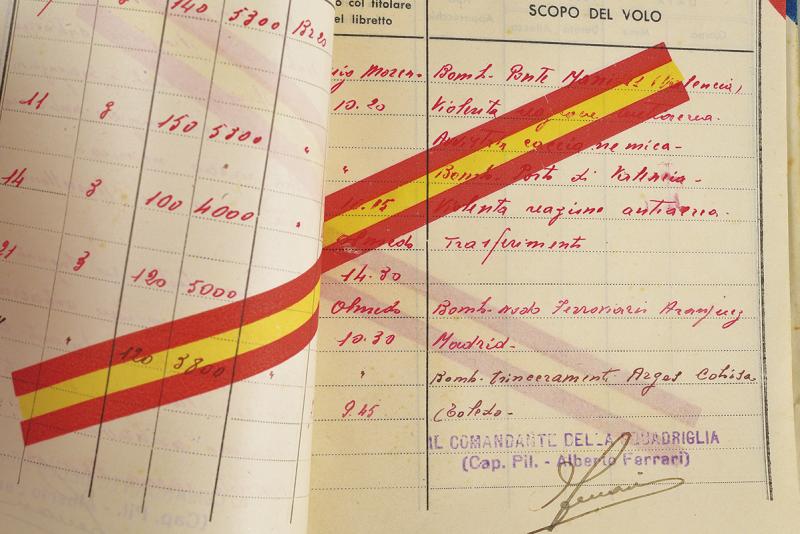 140 5300 Bres
11 3 150 5300 "
14 3 100 4000 "
21 3 120 5000
" " 120 3800 "
o col titolare
el libretto
SCOPO DEL VOLO
Bomb. Ponte (Valencia)
10.20 Violenta reazione antiaerea.
caccia nemica-
" Bomb. Porto di Valencia-
Violenta reazione antiaerea.
Trasferimento
14.30
Olmedo Bomb. nodo Ferroviario Aranjuez
10.30 Madrid-
" Bomb. Trinceramenti Arges Cobisa
9.45 (Toledo-
IL COMANDANTE DELLA SQUADRIGLIA
(Cap. Pil. - Alberto Ferrari)
Ferrari